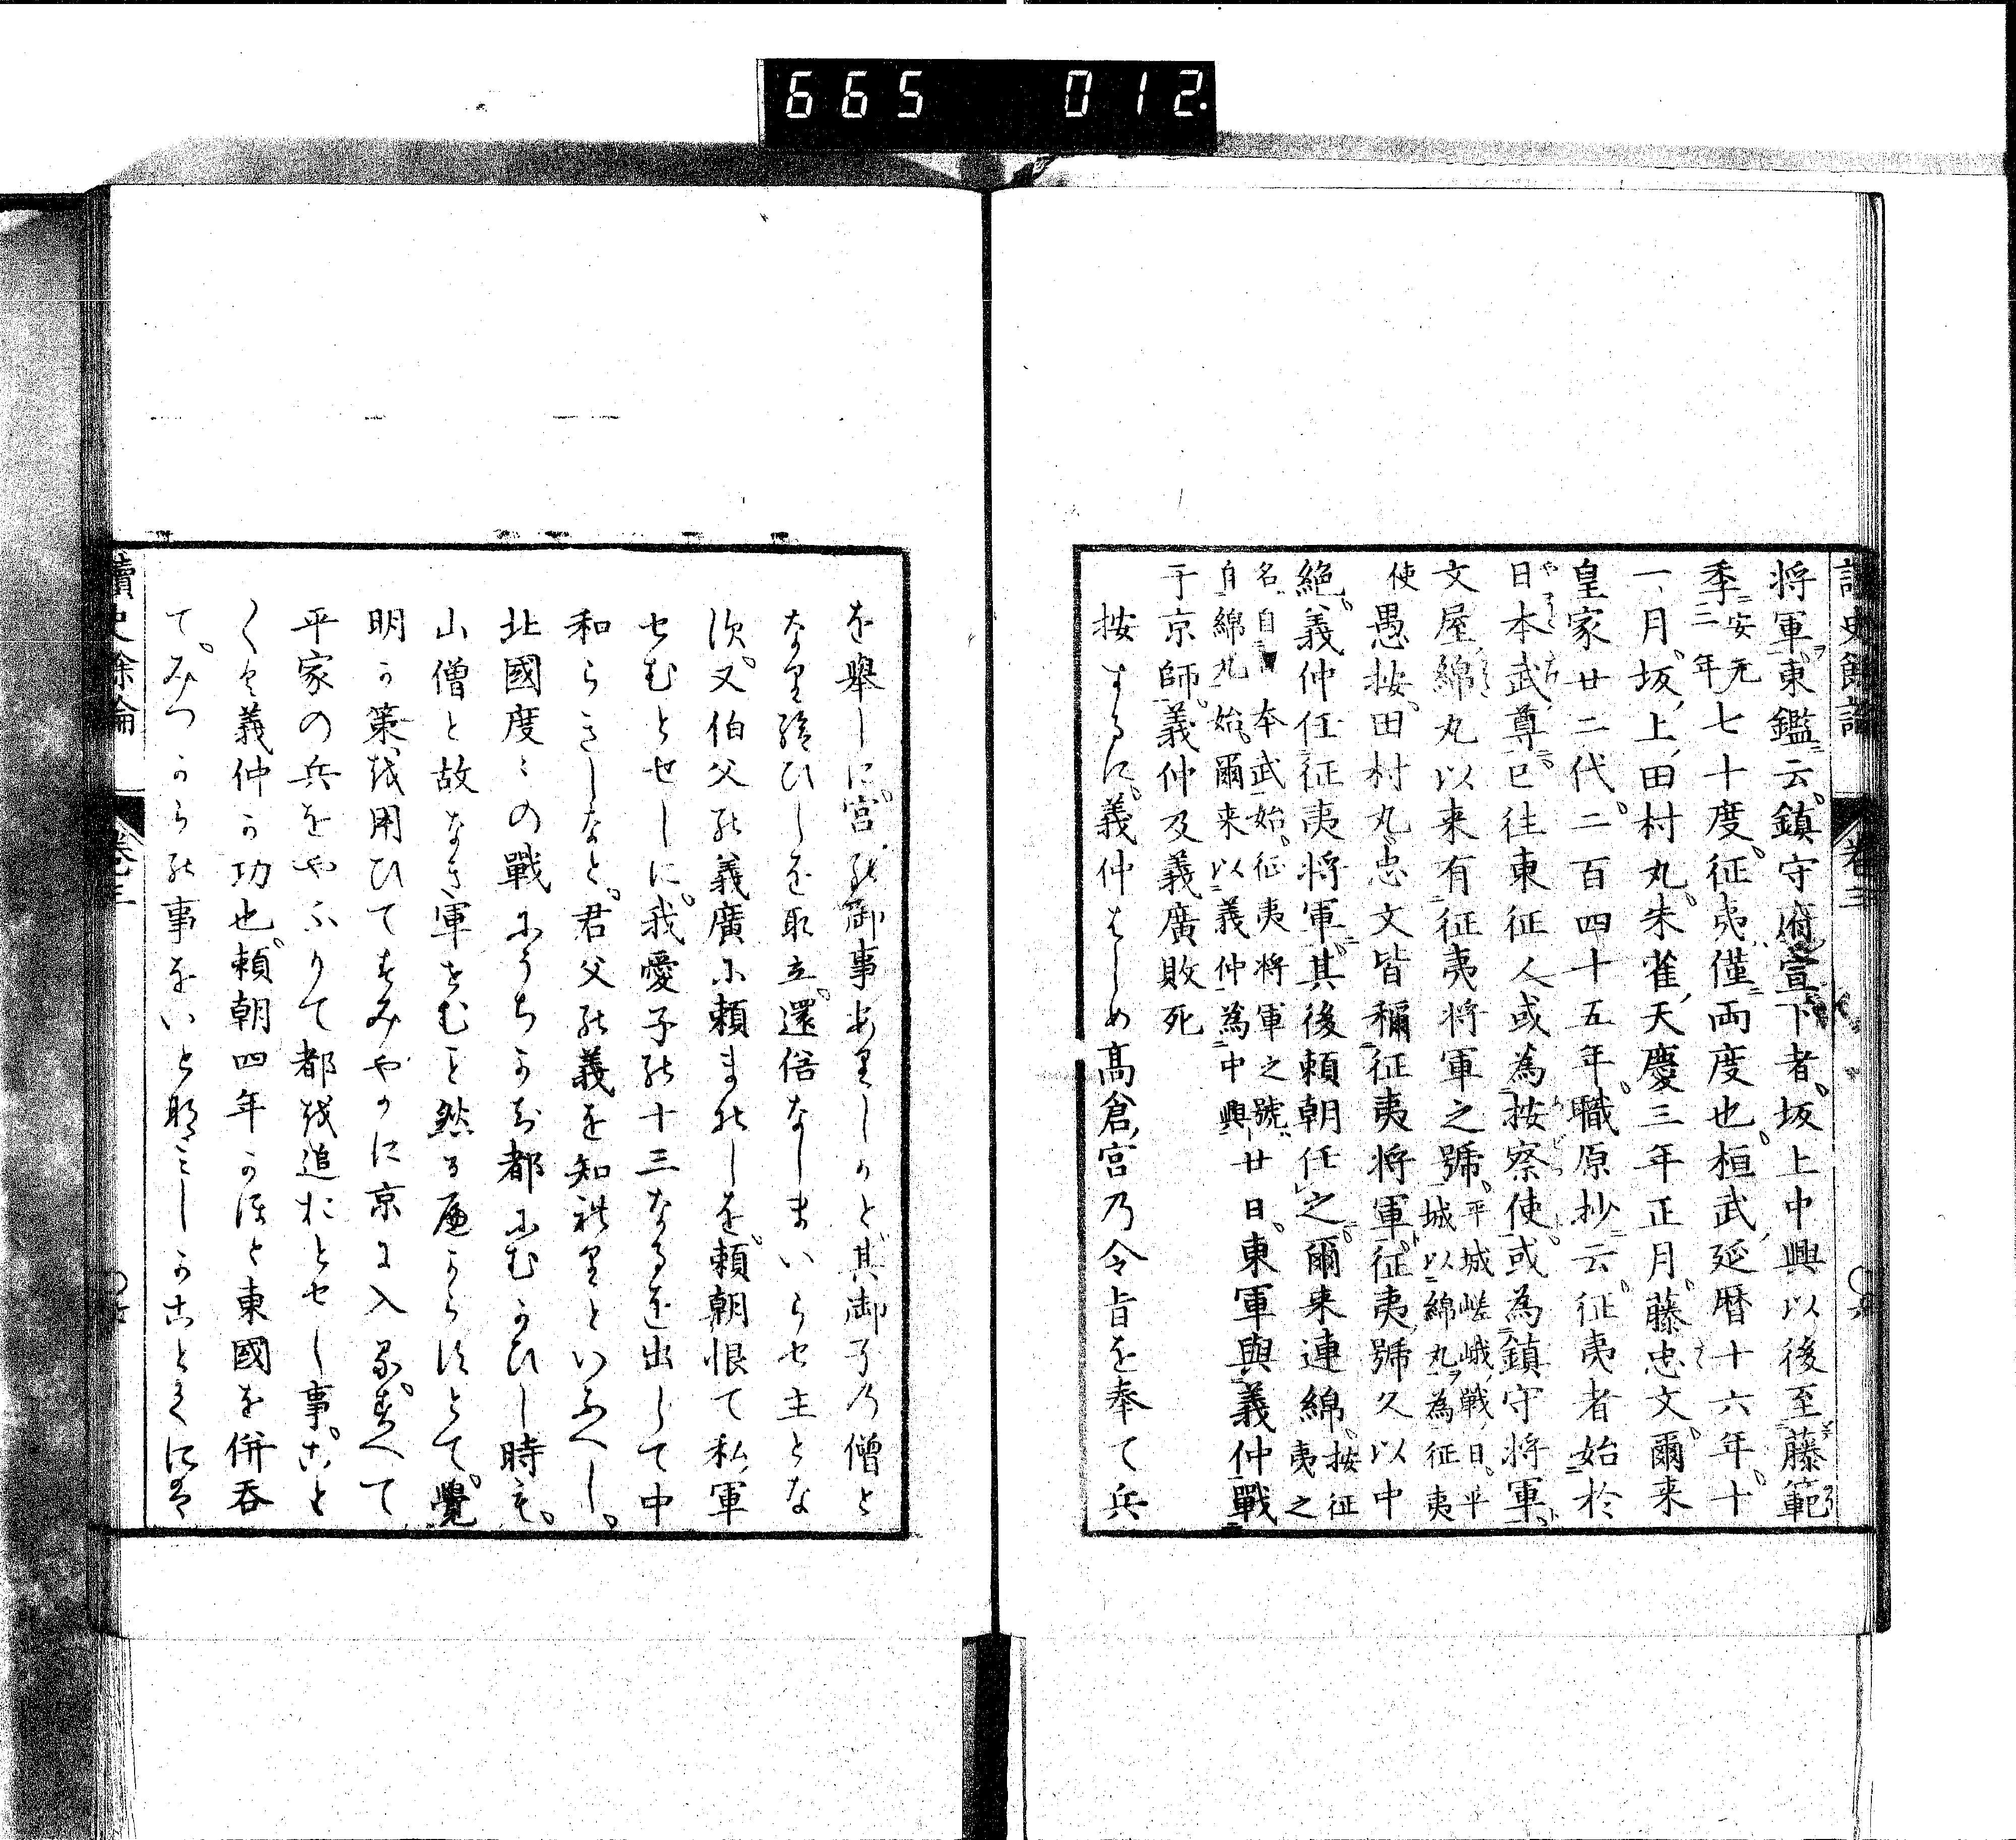 665 012
讀史餘論 卷三
将軍東鑑云鎮守府宣下者坂上中興以後至藤範
季安元二年七十度征夷僅両度也桓武延暦十六年十
一月坂上田村丸朱雀天慶三年正月藤忠文爾来
皇家廿二代二百四十五年職原抄云征夷者始於
日本武尊已往東征人或為按察使或為鎮守将軍
文屋綿丸以来有征夷将軍之號平城嵯峨戦日平城以綿丸為征夷
使愚按田村丸忠文皆稱征夷将軍征夷號久以中
絶義仲任征夷将軍其後頼朝任之爾来連綿按征夷之
名自日本武始征夷将軍之號自綿丸始爾来以義仲為中興廿日東軍與義仲戰
于京師義仲及義廣敗死
按するに義仲はしめ高倉宮乃令旨を奉て兵
を舉しに宮の御事ありしかと其御子乃僧と
なり給ひしを取立還俗なしまいらせ主とな
す又伯父の義廣か頼まれしを頼朝恨て私軍
せむとせしに我愛子の十三なるを出して中
和らきしなと君父の義を知れりといふへし
北國度々の戰にうちかち都にむかひし時も
山僧と故なき軍せむこと然るへからすとて覺
明か策を用ひてすみやかに京に入るすへて
平家の兵をやふりて都を追おとせし事こと
〱く義仲か功也頼朝四年かほと東國を併呑
てみつからの事をいとなみしかことくには
讀史餘論 卷三